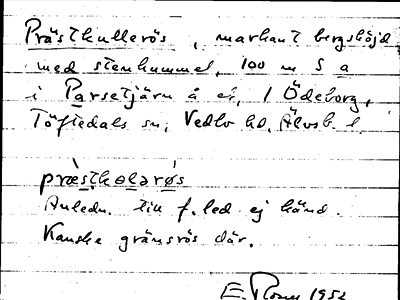 Prästkullerös, markant bergshöjd
med stenkummel, 100 m S a
i Parsetjärn å ek, 1 Ödeborg,
Töftedals sn, Vedbo hd, Älvsb. l.
præstkolarøs
Anledn. till f.led ej känd.
Kanske gränsrös där.
E. 1952